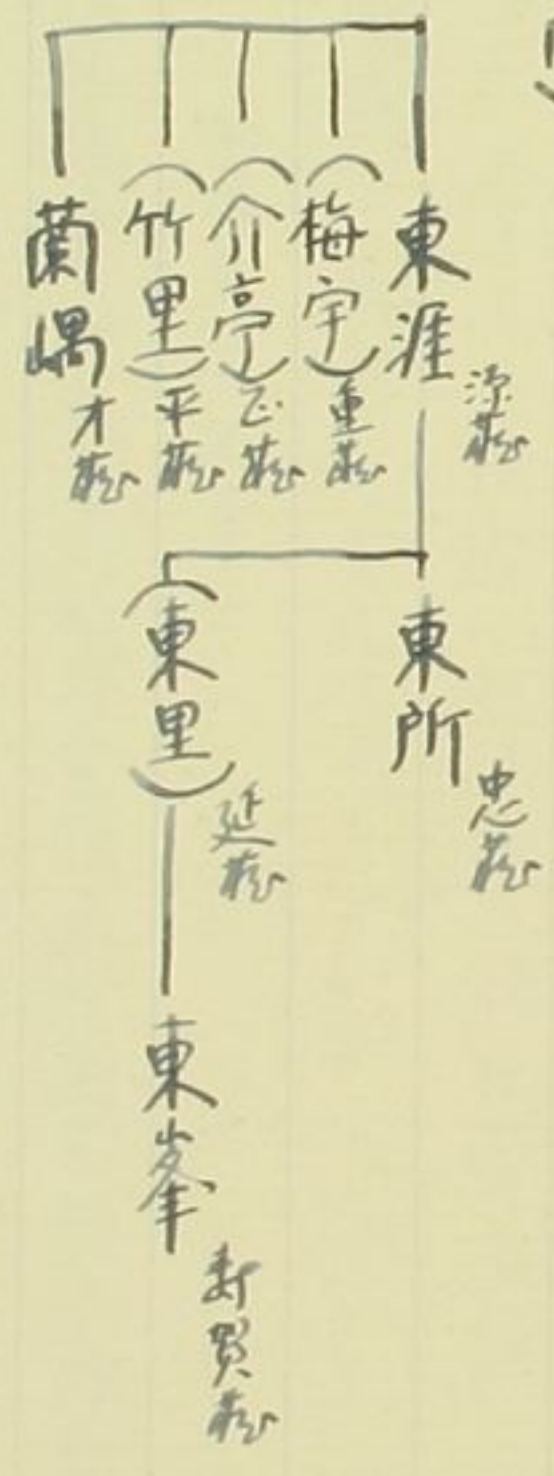 東涯 源蔵
(梅宇) 重蔵
(介亭) 正蔵
(竹里) 平蔵
蘭嵎 才蔵
東所 忠蔵
(東里) 延蔵
東峯 寿賀蔵